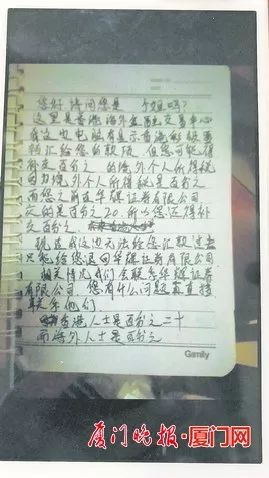 您好 请问您是 小姐吗?
这里是香港海外 交 中心
我这边电脑有显示香港 级
转汇给您的款项 但您可能得
补交百分之 的境外个人所得税
因为境外个人所得税是百分之
而您之前在华 证券有限公司
交的是百分之20.所以您还得补
交百分之
现在我这边无法给您汇款过去
只能给您退回华 证券有限公司
相关情况我们会联系华 证券
有限公司.您有什么问题直接
联系他们
香港人士是百分之二十
而海外人士是百分之
Gamly
厦门晚报·厦门网